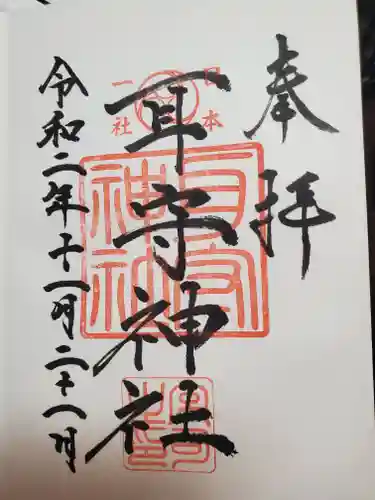 奉拝
日本
一社
耳守神社
耳守神社
宮司之印
令和二年十一月二十八日